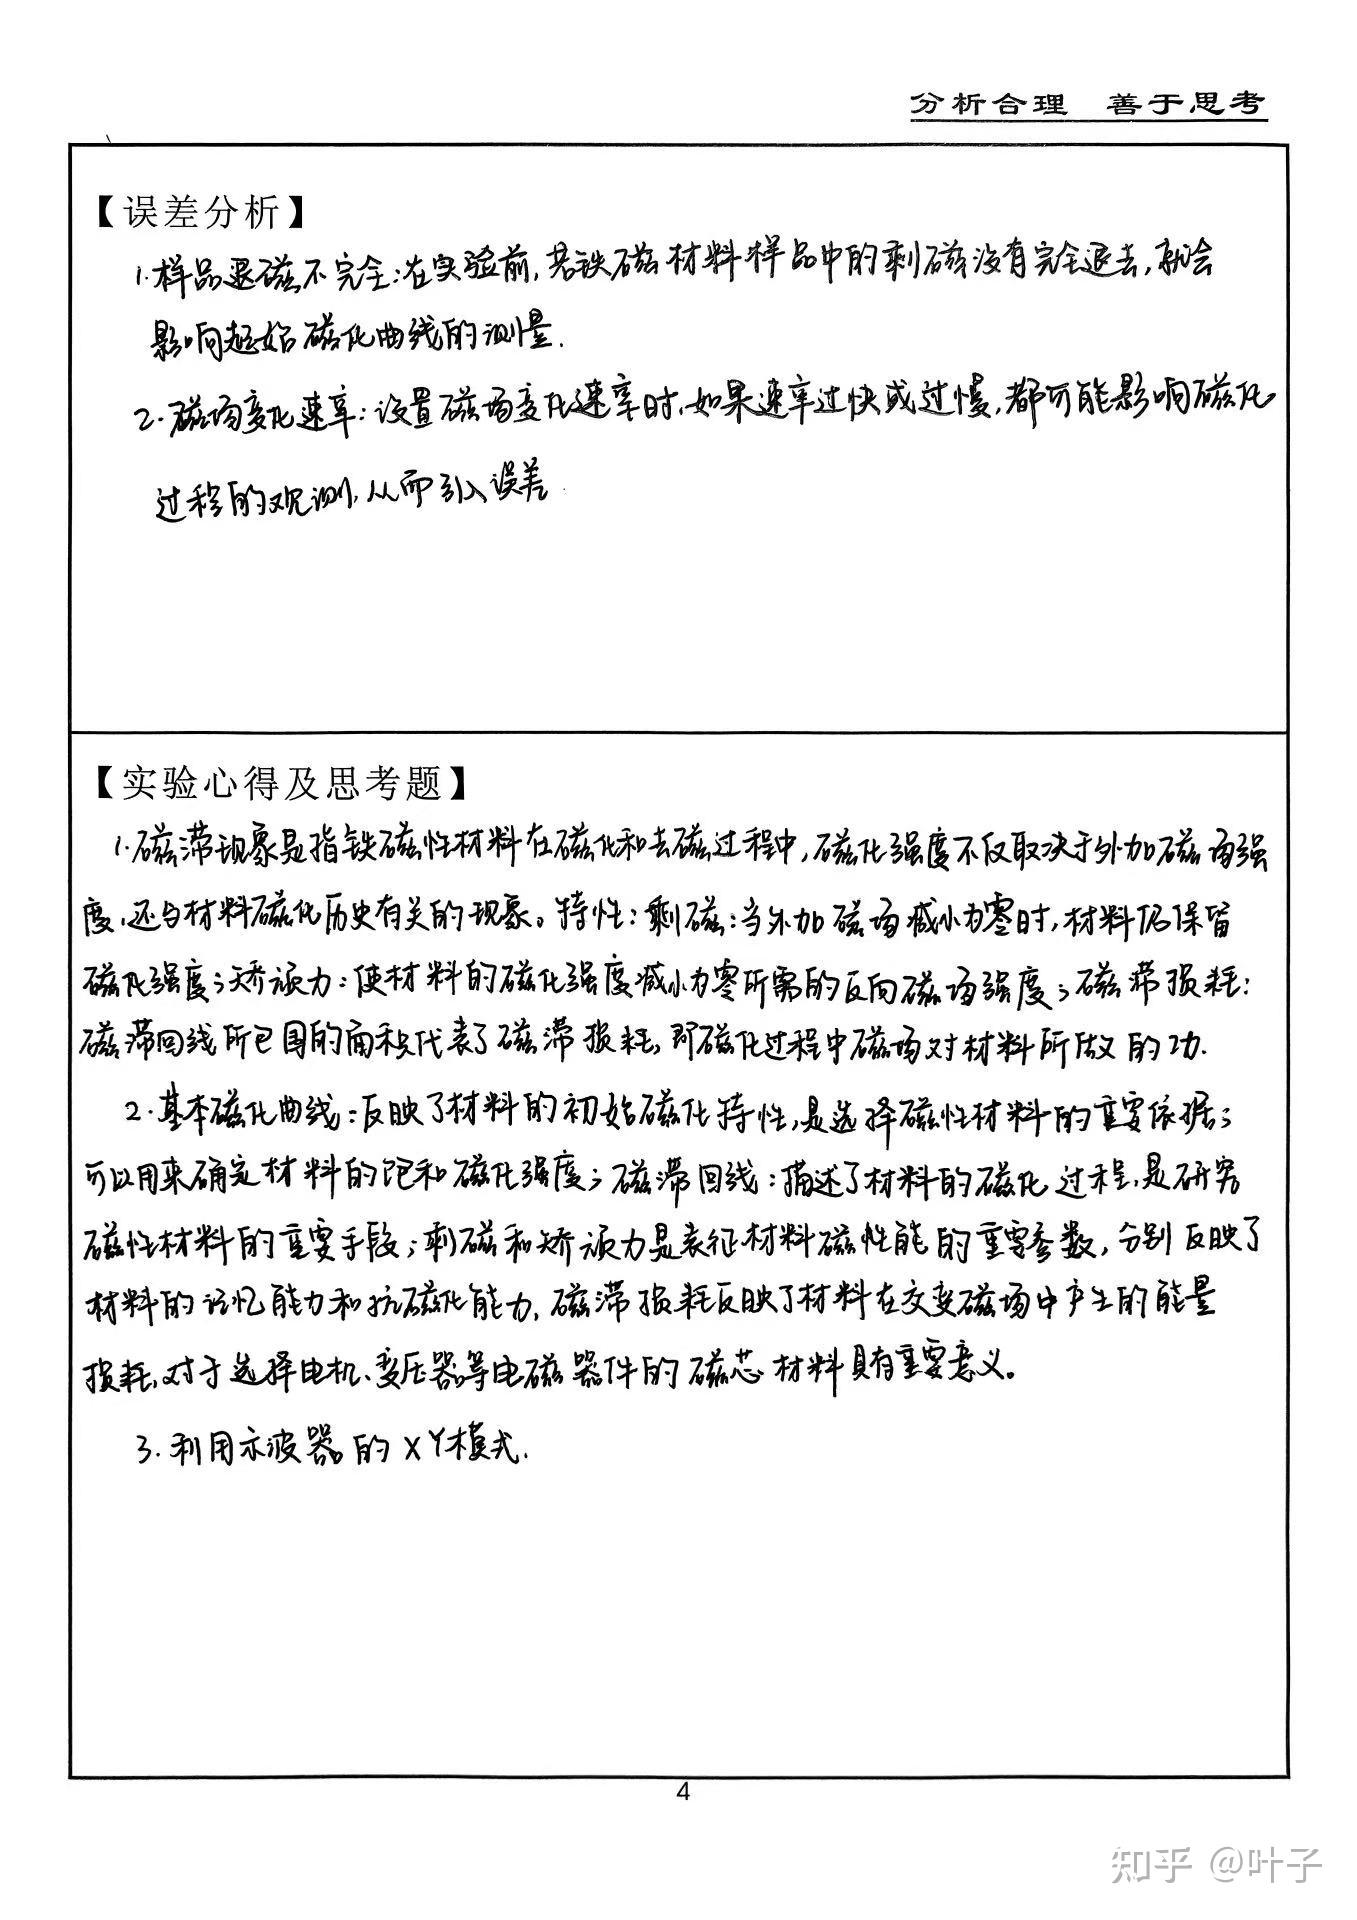 分析合理 善于思考
【误差分析】
1.样品退磁不完全:在实验前,若铁磁材料样品中的剩磁没有完全退去,就会
影响起始磁化曲线的测量.
2.磁场变化速率:设置磁场变化速率时,如果速率过快或过慢,都可能影响磁化
过程的观测,从而引入误差
【实验心得及思考题】
1.磁滞现象是指铁磁性材料在磁化和去磁过程中,磁化强度不仅取决于外加磁场强
度,还与材料磁化历史有关的现象。特性:剩磁:当外加磁场减小为零时,材料仍保留
磁化强度;矫顽力:使材料的磁化强度减小为零所需的反向磁场强度;磁滞损耗:
磁滞回线所包围的面积代表了磁滞损耗,即磁化过程中磁场对材料所做的功.
2.基本磁化曲线:反映了材料的初始磁化特性,是选择磁性材料的重要依据;
可以用来确定材料的饱和磁化强度;磁滞回线:描述了材料的磁化过程,是研究
磁性材料的重要手段;剩磁和矫顽力是表征材料磁性能的重要参数,分别反映了
材料的记忆能力和抗磁化能力,磁滞损耗反映了材料在交变磁场中产生的能量
损耗,对于选择电机、变压器等电磁器件的磁芯材料具有重要意义。
3.利用示波器的XY模式.
4
知乎 @叶子